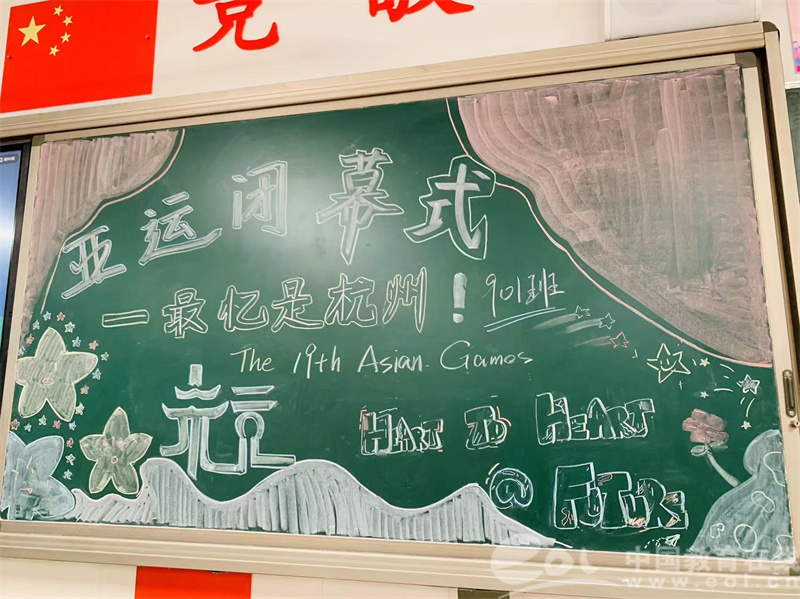 亚运闭幕式
一最忆是杭州！901班
The 19th Asian Games
HEART TO HEART
@ FUTURE
eol 中国教育在线
www.eol.cn